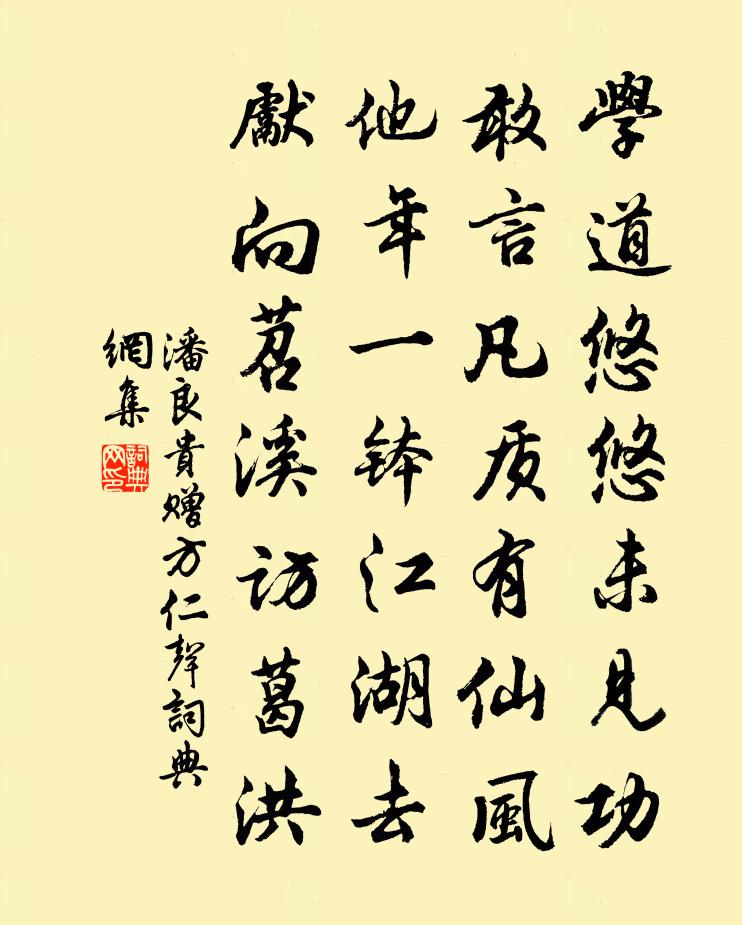 學道悠悠未見功
敢言凡质有仙風
他年一钵江湖去
獻向苕溪访葛洪
潘良貴赠方仁聲詞典
網集
詞典
网印